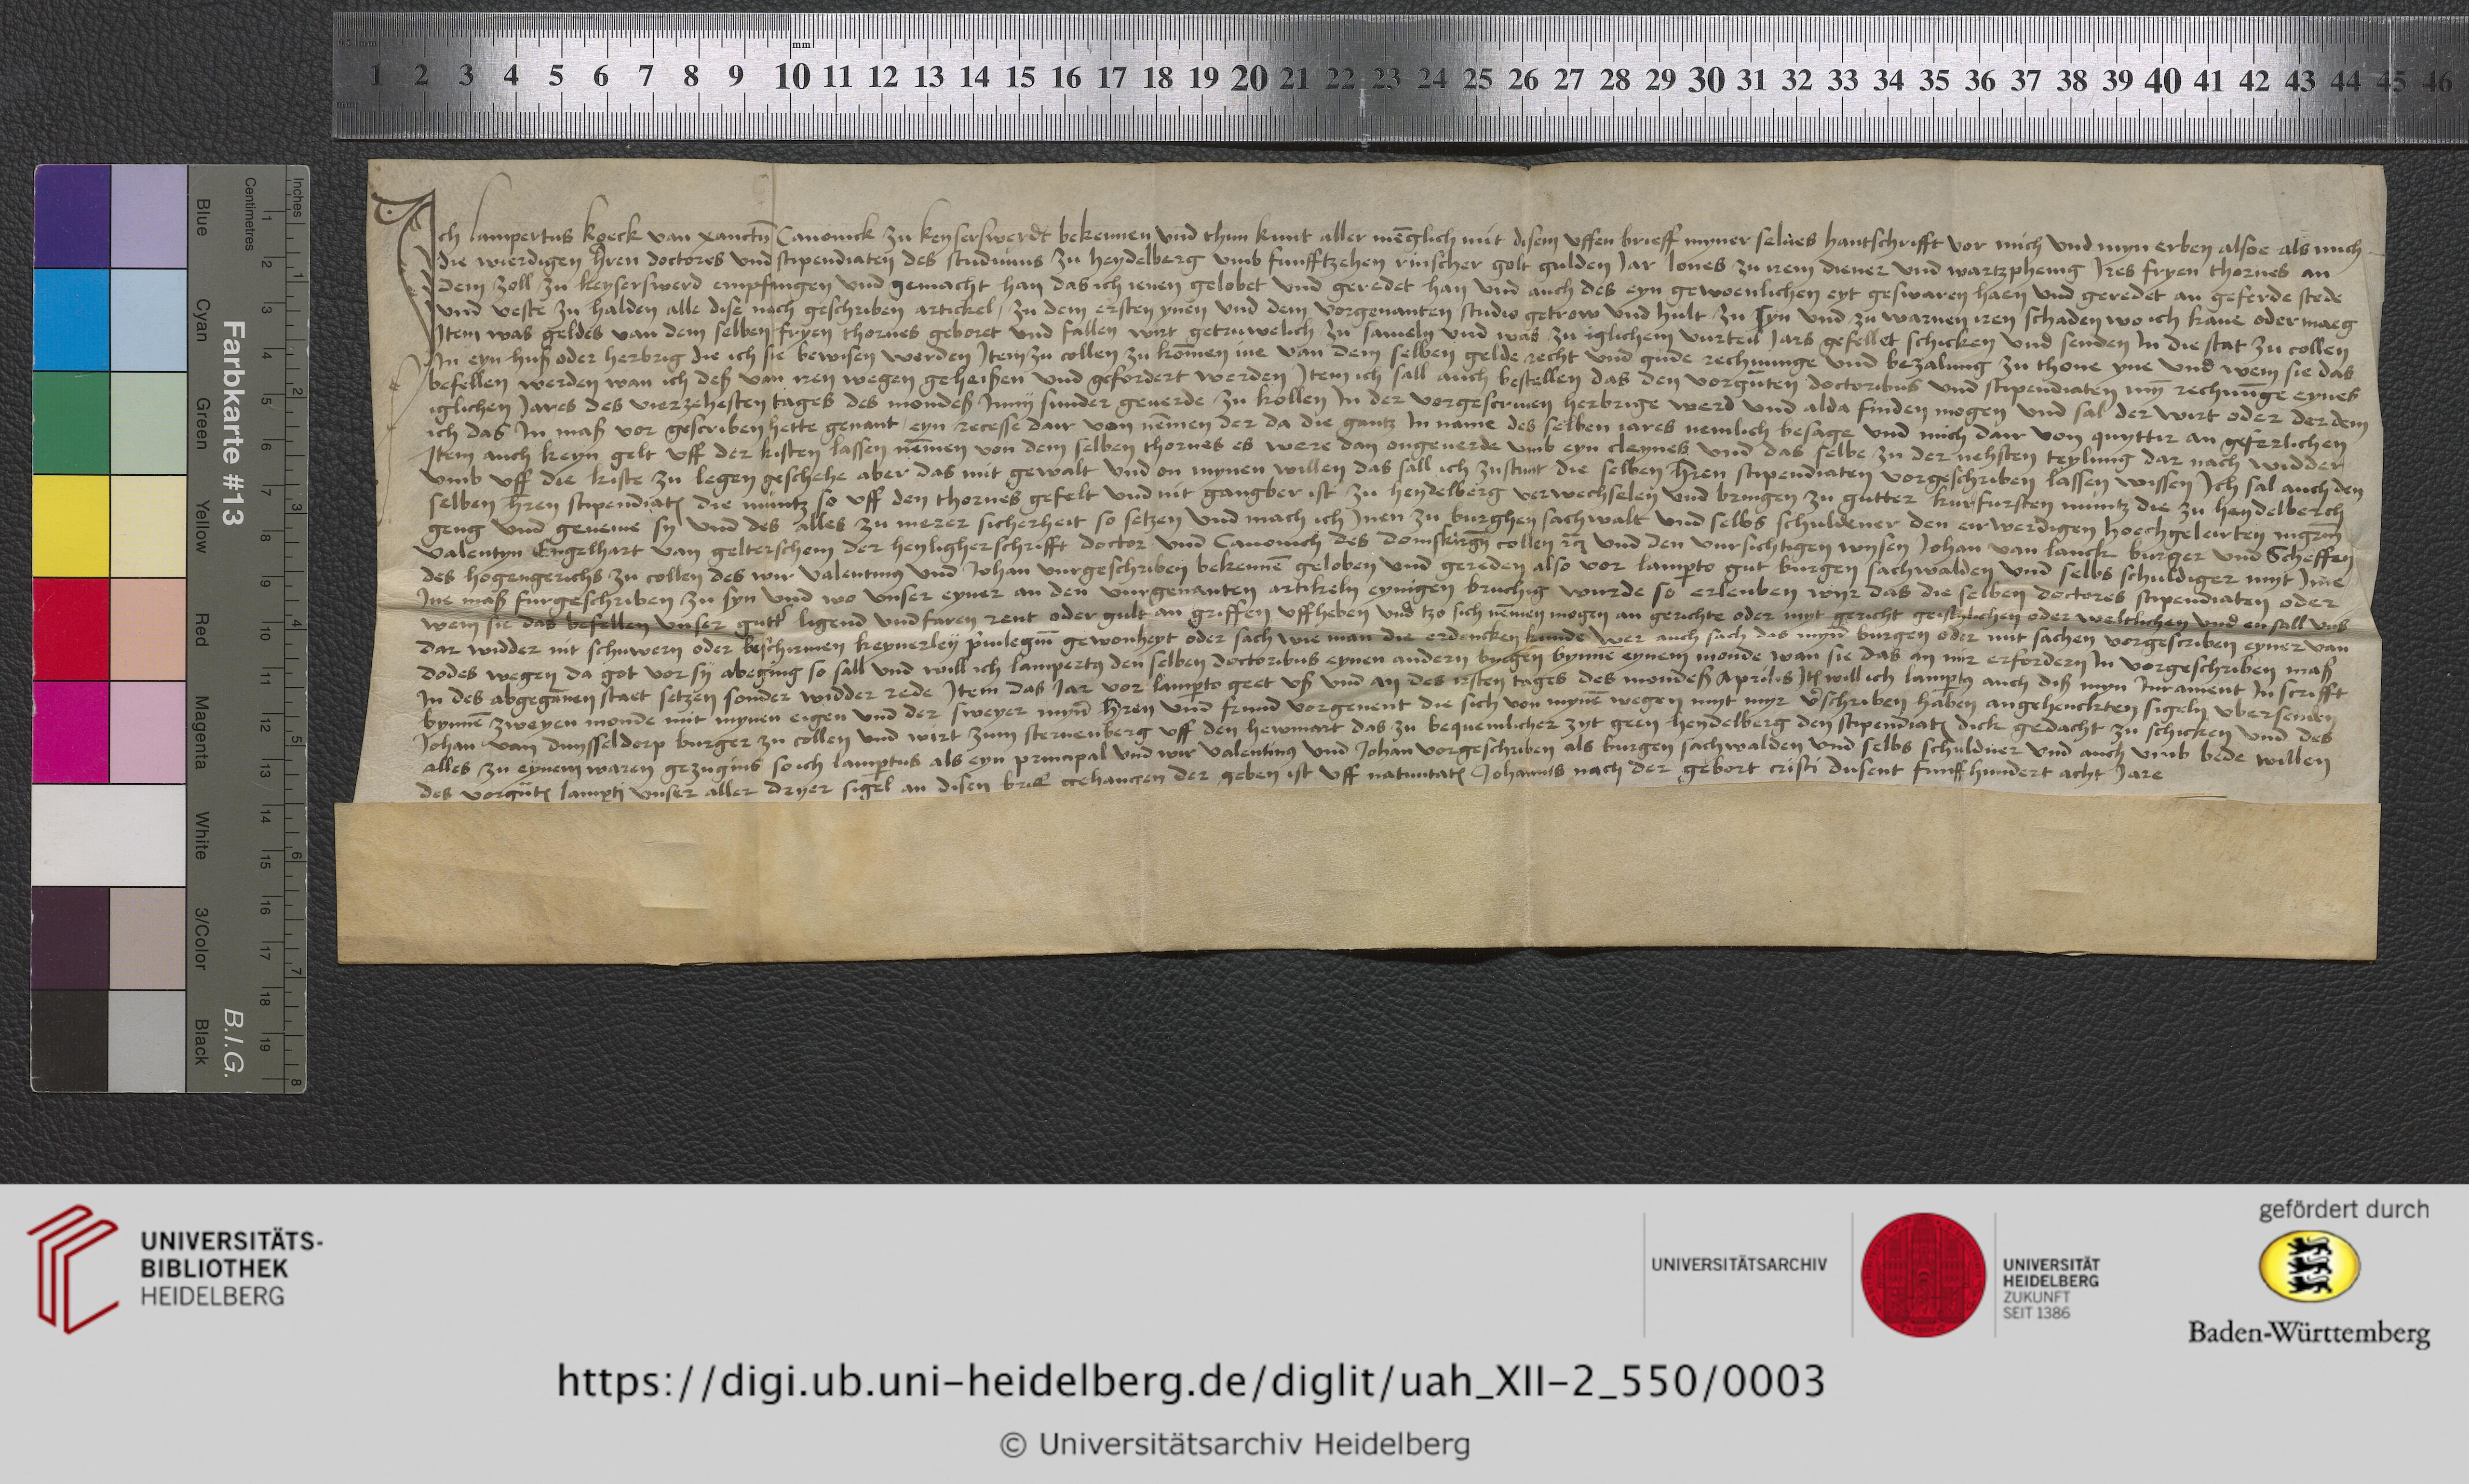 Ich lampertus koeck van xanctn Canonick zu keyserswerdt bekennen und thun kunt aller menglich mit disem uffen brieff myner selues hantschrifft vor mich und myn erben alsoe als mich
die wierdigen hren doctores und stipendiaten des studiums zu heydelberg umb funfftzehen rinscher golt gulden Jar lones zu irem diener und wartzphenig Ires fryen thornes an
dem zoll zu keyserswerd empfangen und gemacht han das ich ienen gelobet und geredet han und auch des eyn gewoenlichen eyt geswaren haen und geredet an geferde stede
und veste zu halden alle dise nach geschriben artickel zu dem ersten ynen und dem vorgenanten studio getrow und hult zu syn und zu warnen iren schaden wo ich kane oder maeg
Item was geldes van dem selben fryen thornes geboret und fallen wirt getruwelich zu sameln und was zu iglichem vurteil Jars gefellet schicken und senden In die stat zu collen
In eyn huß oder herbrig die ich sie bewisen werden Item zu collen zu komen ine van dem selben gelde recht und gude rechnunge und bezalung zu thone yne und wem sie das
befellen werden wan ich deß van iren wegen geheißen und gefordert werden Item ich sall auch bestellen das den vorgnten doctoribus und stipendiaten my rechnunge eynes
iglichen Jares des vierzehesten tages des mondeß Junij sunder geuerde zu kollen In der vorgescriuen herbrige werd und alda finden mogen und sal der wirt oder der dem
ich das In maß vor gescriben hette genant eyn recesse dair von nemen der da die gantz In name des selben iares nemlich besage und mich dair von quyttir an geferlichen
Item auch keyn gelt uff der kisten lassen nemen von dem selben thornes es were dan ongeuerde umb eyn cleynes und das selbe zu der nehsten teylung dar nach widder
umb uff die kiste zu legen geschehe aber das mit gewalt und on mynen willen das sall ich zustunt die selben hren stipendiaten vorgeschriben lassen wissen Ich sal auch den
selben hren stipendiaten die muntz so uff den thornes gefelt und nit gangber ist zu heydelberg verwechselen und bringen zu gutter kurfursten muntz die zu heydelberch
geng und geneme sy und des alles zu merer sicherheit so setzen und mach ich Inen zu burghen sachwalt und selbs schuldener den eirwerdigen hoechgeleirten
valentyn Engelhart van gelterschem der heyligher schrifft doctor und Canonich des domskirgn collen und den vursichtigen wysen Johan van lanck burger und Scheffen
des hogengerichs zu collen des wir valentinus und Johan vurgeschriben bekennen geloben und gereden also vor lamperto gut burgen sachwalden und selbs schuldiger myt Ime
Ine maß furgeschriben zu syn und wo unser eyner an den vurgenanten artikeln eynigen bruchig wurde so erleuben wyr das die selben doctores stipendiaten oder
wem sie das befellen unser gutter ligend und faren rent oder gult an griffen uffheben und tzo sich nemen mogen an gerichte oder myt gericht geistlichen oder weltlichen und en sall uns
dar widder nit schuwern oder beschirmen keynerley priuilegium gewonheyt oder sach wie man die erdencken kunde wer auch sach das myn burgen oder mit sachen vorgescriben eyner van
dodes wegen da got vor sy abeging so sall und will ich lampertus den selben doctoribus eynen andern burgen bynnen eynem monde wan sie das an mir erfordern In vorgeschriben maß
In des abgegangen staet setzen sonder widder rede Item das Jar vor lamperto geet uß und an des irsten tages des mondeß Aprilis Item will ich lampertus auch diß myn Iurament In scrifft
bynnen zweyen monde mit mynen eigen und der sweyer myner hren und frund vorgenent die sich von mynen wegen myt myr verschriben haben angehenckten sigeln ubersenden
Johan van dunsseldorp burger zu collen und wirt zum sternenberg uff den hewmart das zu bequemlicher zyt geen heydelberg den stipendiaten dick gedacht zu schicken und des
alles zu eynem waren gezugins so ich lampertus als eyn principal und wir valentinus und Johan vorgeschriben als burgen sachwalden und selbs schuldner und auch umb bede willen
des vorgnten lamperti unser aller dryer sigel an disen brieff gehangen der geben ist uff natiuitatis Johannis nach der gebort cristi dusent funff hundert acht Jare
95 mm
mm
mm
1 2 3 4 5 6 7 8 9 10 11 12 13 14 15 16 17 18 19 20 21 22 23 24 25 26 27 28 29 30 31 32 33 34 35 36 37 38 39 40 41 42 43 44 45 46
Farbkarte #13
B.I.G.
Centimetres
Inches
1 2 3 4 5 6 7 8 9 10 11 12 13 14 15 16 17 18 19
1 2 3 4 5 6 7 8
Blue
Cyan
Green
Yellow
Red
Magenta
White
3/Color
Black
UNIVERSITÄTS-
BIBLIOTHEK
HEIDELBERG
UNIVERSITÄTSARCHIV
UNIVERSITÄT
HEIDELBERG
ZUKUNFT
SEIT 1386
gefördert durch
Baden-Württemberg
https://digi.ub.uni-heidelberg.de/diglit/uah_XII-2_550/0003
© Universitätsarchiv Heidelberg